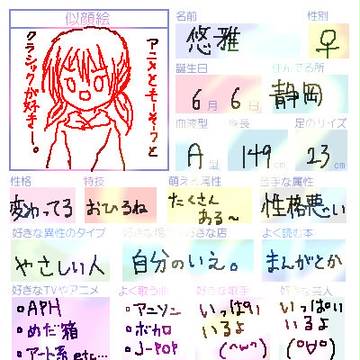 似顔絵
アニメとモーツァルトと
クラシックが好きー。
名前
悠雅
性別
♀
誕生日
6月6日
住んでる所
静岡
血液型
A型
身長
149cm
足のサイズ
23cm
性格
変わってる
特技
おひるね
萌える属性
たくさん
ある〜
苦手な属性
性格悪い
好きな異性のタイプ
やさしい人
好きな店
自分のいえ。
よく読む本
まんがとか
好きなTVやアニメ
・APH
・めだ箱
・アート系etc...
よく歌う曲
・アニソン
・ボカロ
・J-POP
好きな歌手
いっぱい
いるよ
(^ω^)
好きな芸人
いっぱい
いるよ
(°∀°)